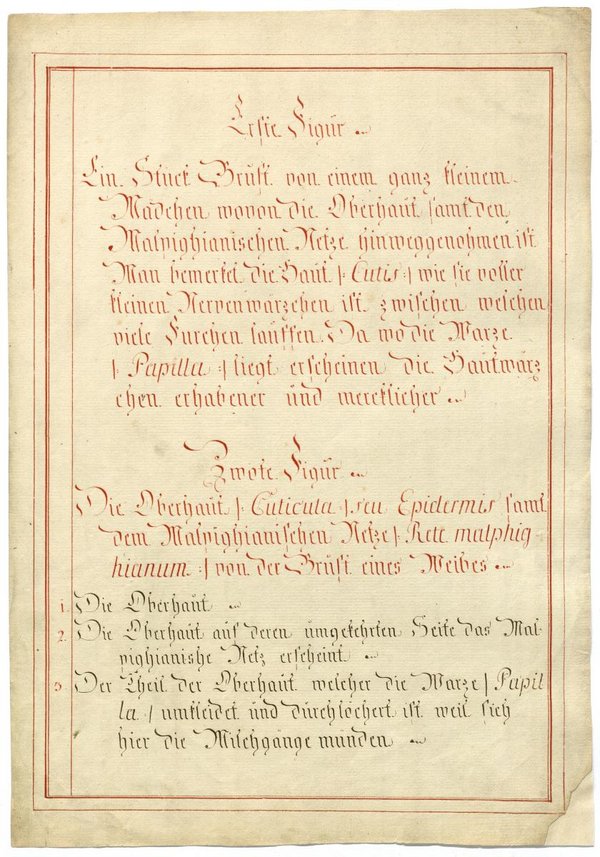 Erste Figur
Ein Stück Brüst von einem ganz kleinem
Mädchen wovon die Oberhaut samt den
Malpighianischen Netze hinweggenohmen ist
Man bemerket die Haut /: Cutis :/ wie sie voller
kleinen Nervenwärzchen ist zwischen welchen
viele Furchen lauffen. Da wo die Warze
/: Papilla :/ liegt erscheinen die Hautwärz
chen erhabener und mercklicher
Zwote Figur
Die Oberhaut /: Cuticula / seu Epidermis samt
dem Malpighianischen Netze /: Rete malphig
hianum :/ von der Brüst eines Weibes
1. Die Oberhaut
2. Die Oberhaut auf deren umgekehrten Seite das Mal-
pighianishe Netz erscheint
3. Der Theil der Oberhaut welcher die Warze / Papil
la / umkleidet und dürchlöchert ist weil sich
hier die Milchgänge münden